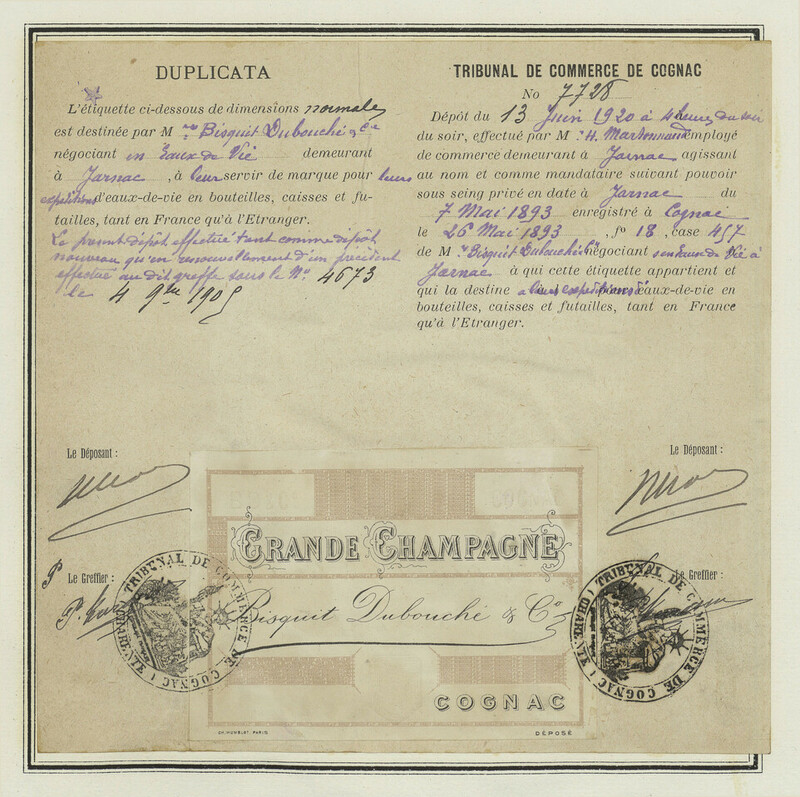 DUPLICATA
L'étiquette ci-dessous de dimensions normales
est destinée par M rs Bisquit Dubouché & Cie
négociant en Eaux de Vie demeurant
à Jarnac, à leur servir de marque pour leurs
expéditions d'eaux-de-vie en bouteilles, caisses et fu-
tailles, tant en France qu'à l'Etranger.
Le présent dépôt effectué tant comme dépôt
nouveau qu'en renouvellement d'un précédent
effectué au dit greffe sous le No 4673
le 4 9bre 1905
TRIBUNAL DE COMMERCE DE COGNAC
No 7728
Dépôt du 13 Juin 1920 à 4 heures du soir
du soir, effectué par M r H. employé
de commerce demeurant à Jarnac agissant
au nom et comme mandataire suivant pouvoir
sous seing privé en date à Jarnac du
7 Mai 1893 enregistré à Cognac
le 26 Mai 1893, fo 18, case 457
de M rs Bisquit Dubouché & Cie négociant s en Eaux de Vie à
Jarnac à qui cette étiquette appartient et
qui la destine à leurs expéditions d'eaux-de-vie en
bouteilles, caisses et futailles, tant en France
qu'à l'Etranger.
Le Déposant :
Le Déposant :
P
Le Greffier :
Le Greffier :
GRANDE CHAMPAGNE
Bisquit Dubouché & Co
COGNAC
CH. HUMBLOT PARIS
DÉPOSÉ
TRIBUNAL DE COMMERCE DE COGNAC (CHARENTE)
TRIBUNAL DE COMMERCE DE COGNAC (CHARENTE)